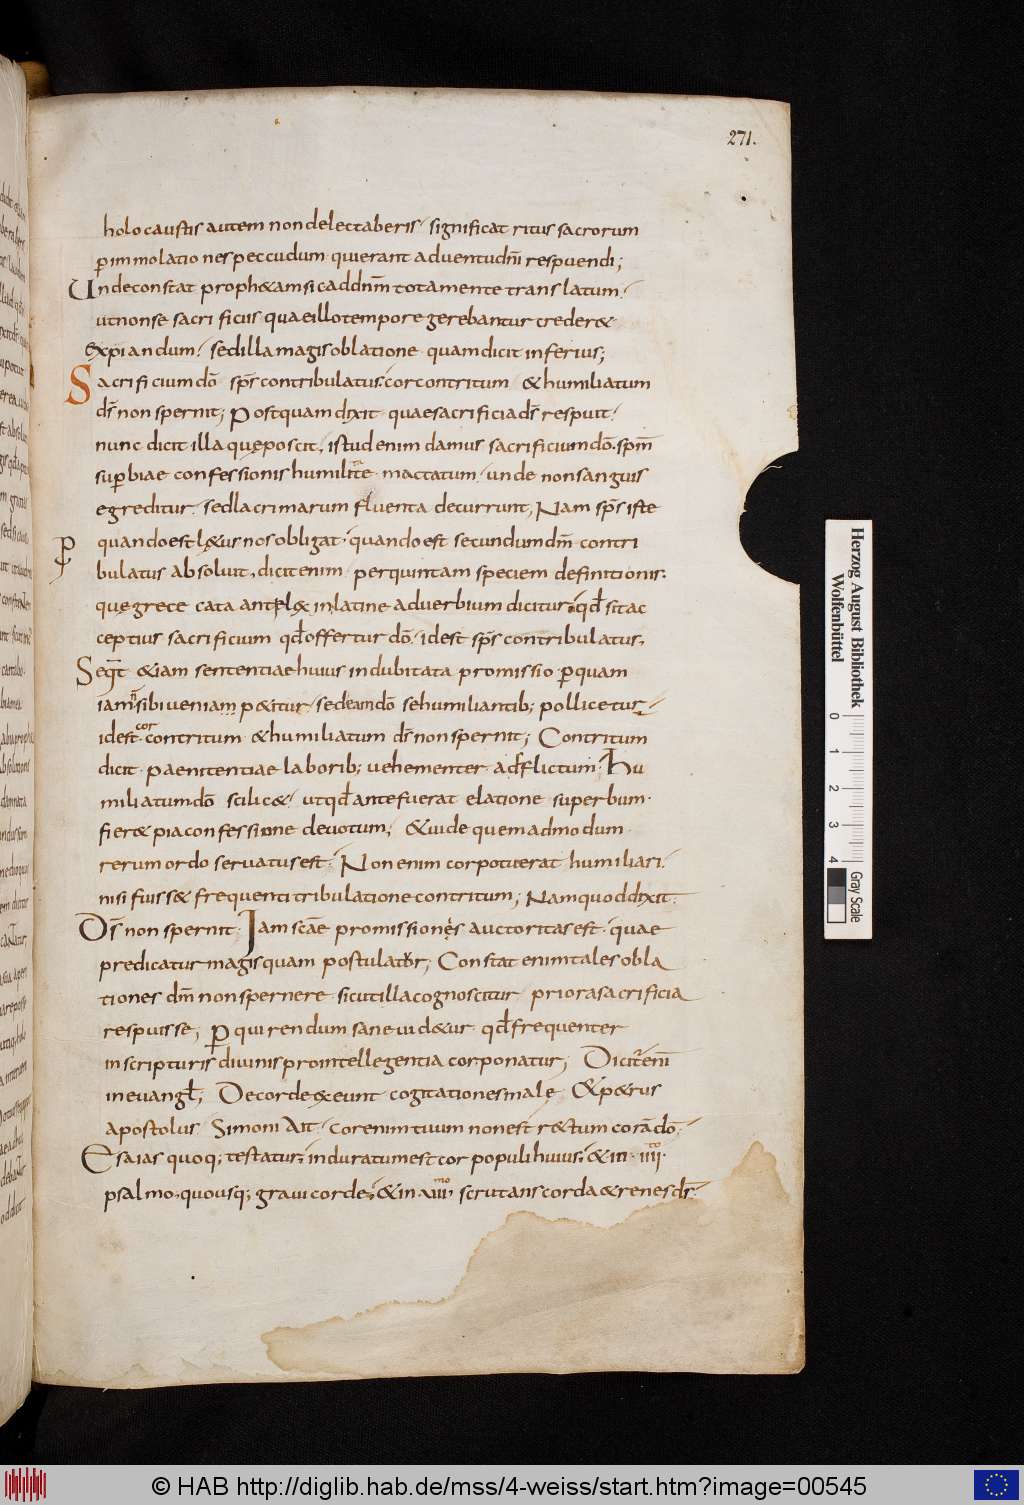 271.
holocaustis autem non delectaberis· significat ritus sacrorum
p̱ immolationes peccudum· qui erant adventu dn̄i respuendi;
Unde constat proph&am sic ad dn̄m tota mente translatum·
ut non se sacrificiis quae illo tempore gerebantur creder&
expiandum· sed illa magis oblatione· quam dicit inferius;
Sacrificium dō sp̄s contribulatus· cor contritum· & humiliatum
ds̄ non spernit; Postquam dixit· quae sacrificia ds̄ respuit·
nunc dicit illa quę poscit· istud enim damus sacrificium dō· sp̄m
sup̱biae confessionis humilitate mactatum· unde non sanguis
egreditur· sed lacrimarum fluenta decurrunt, Nam sp̄s iste
quando est l&us nos obligat· quando est secundum dm̄ contri
bulatus absoluit, dicit enim· per quintam speciem definitionis·
que grece cata antilexin latine adverbium dicitur· qđ sit ac
ceptius sacrificium qđ offertur dō· id est sp̄s contribulatus,
Seqt̄ &iam sententiae huius indubitata promissio p̱ quam
iam n̄ sibi veniam p&itur· sed eam dō se humiliantib; pollicetur·
id est· cor contritum & humiliatum ds̄ non spernit; Contritum
dicit paenitentiae laborib; vehementer adflictum· Hu
miliatum dō scilic&· ut qđ ante fuerat elatione superbum·
fier& pia confessione devotum; & vide quemadmodum
rerum ordo servatus est· Non enim cor potuerat humiliari·
nisi fuiss& frequenti tribulatione contritum; Nam quod dixit·
Ds̄ non spernit· Iam sc̄ae promissionis auctoritas est· quae
predicatur magis quam postulatur; Constat enim tales obla
tiones dm̄ non spernere sicut illa cognoscitur priora sacrificia
respuisse, P̱quirendum sane vid&ur qđ frequenter
in scripturis divinis pro intellegentia cor ponatur; Dicit̄ enī
in evangł; De corde exeunt cogitationes male· & p&rus
apostolus Simoni Ait· cor enim tuum non est r&tum corā dō·
Esaias quoq; testatur· induratum est cor populi huius· & in· iiii to·
psalmo· quousq; gravi corde· & in· mo scrutans corda & renes ds̄·
Herzog August Bibliothek
Wolfenbüttel
0 1 2 3 4
Gray Scale
© HAB http://diglib.hab.de/mss/4-weiss/start.htm?image=00545